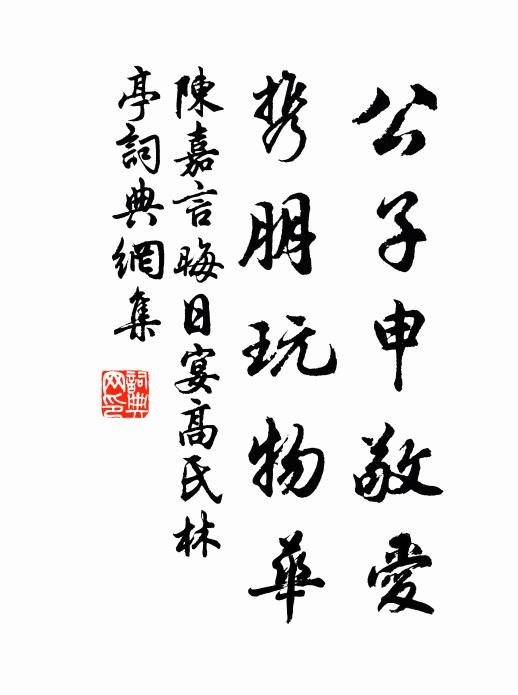 公子申敬愛
携朋玩物華
陳嘉言晦日宴高氏林
亭詞典網集
詞典
网印